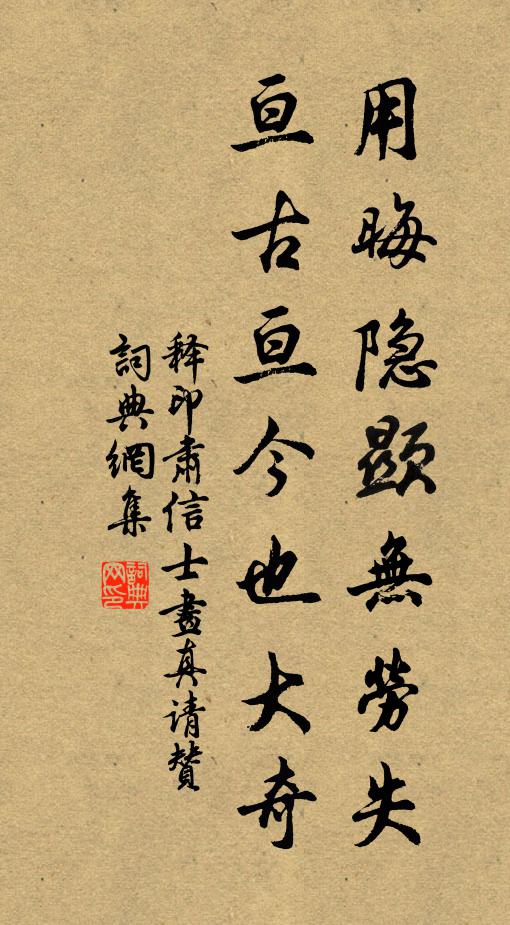 用晦隐顯無勞失
亘古亘今也大奇
释印肃信士畫真请贊
詞典網集
詞典網印